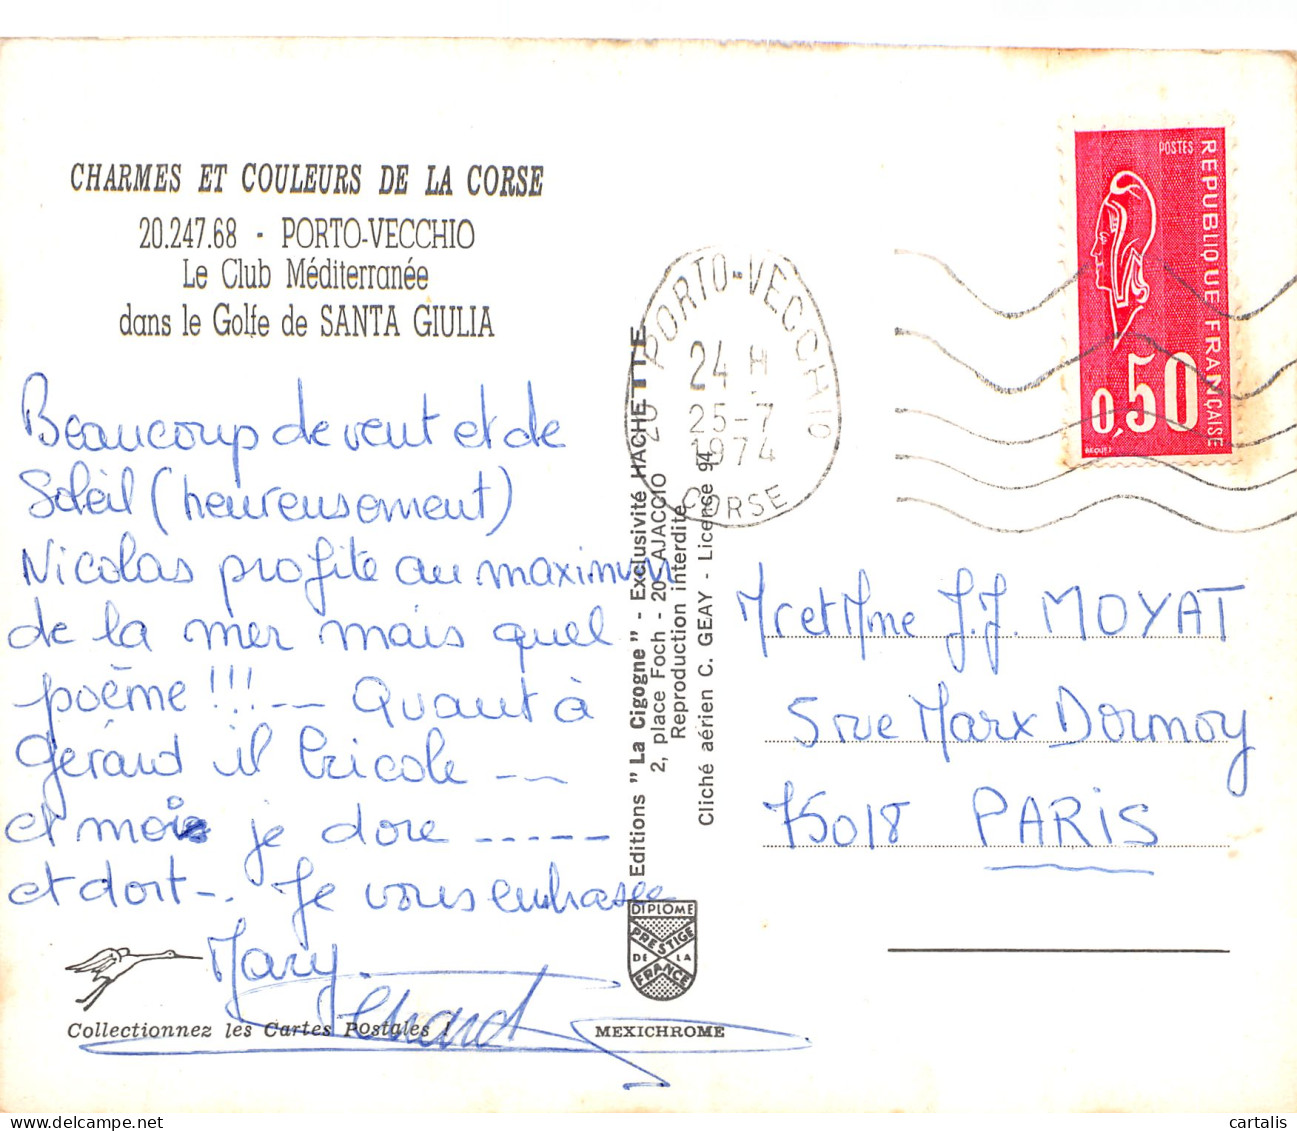 CHARMES ET COULEURS DE LA CORSE
20.247.68 - PORTO-VECCHIO
Le Club Méditerranée
dans le Golfe de SANTA GIULIA
Beaucoup de vent et de
Soleil (heureusement)
Nicolas profite au maximum
de la mer mais quel
poème !!! -- Quant à
Gérard il bricole --
et mois je dore -----
et dort -. Je vous embrasse
Mary.
Collectionnez les Cartes Postales !
Editions " La Cigogne " - Exclusivité HACHETTE
2, place Foch - 20 - AJACCIO
Reproduction interdite
Cliché aérien C. GEAY - License 94
DIPLOME
PRESTIGE
DE LA
FRANCE
MEXICHROME
20 PORTO-VECCHIO
24 H
25-7
1974
CORSE
POSTES
REPUBLIQUE FRANÇAISE
0,50
BEQUET
Mr et Mme J.J. MOYAT
5 rue Marx Dormoy
75018 PARIS
cartalis